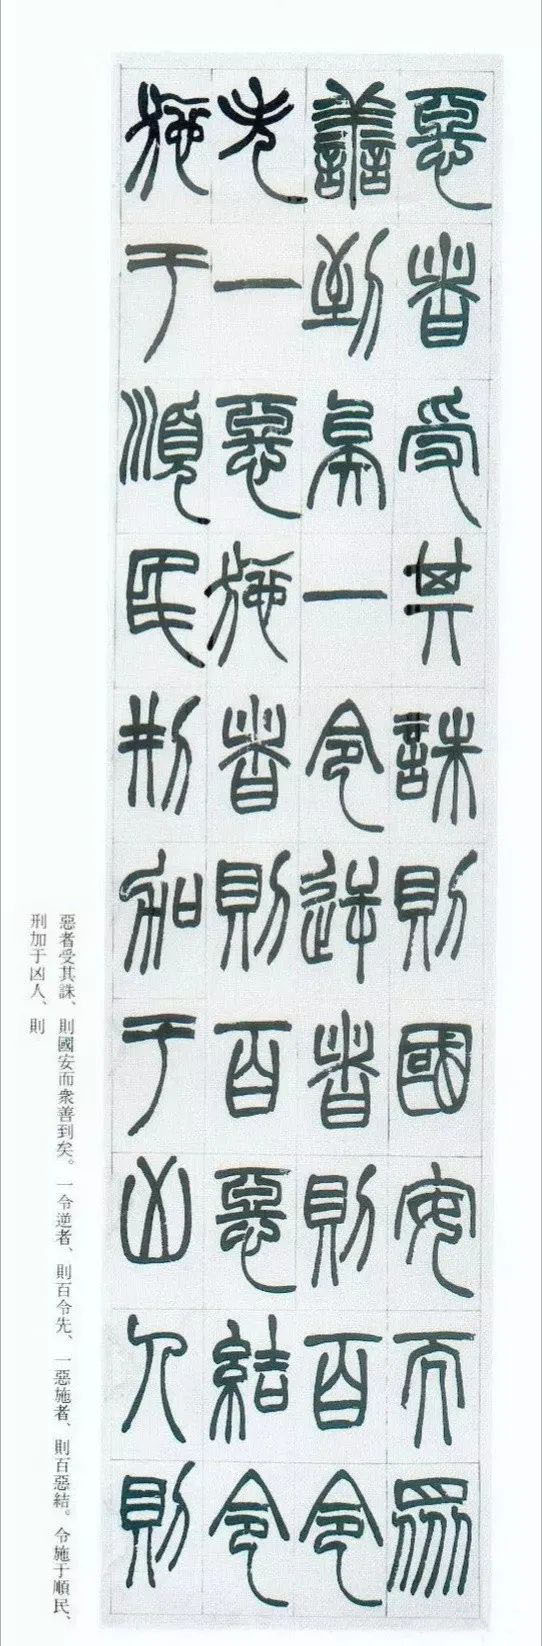 惡者受其誅則國安而衆
善到矣一令逆者則百令
先一惡施者則百惡結令
施于順民刑加于凶人則
惡者受其誅、則國安而衆善到矣。一令逆者、則百令先、一惡施者、則百惡結。令施于順民、
刑加于凶人、則